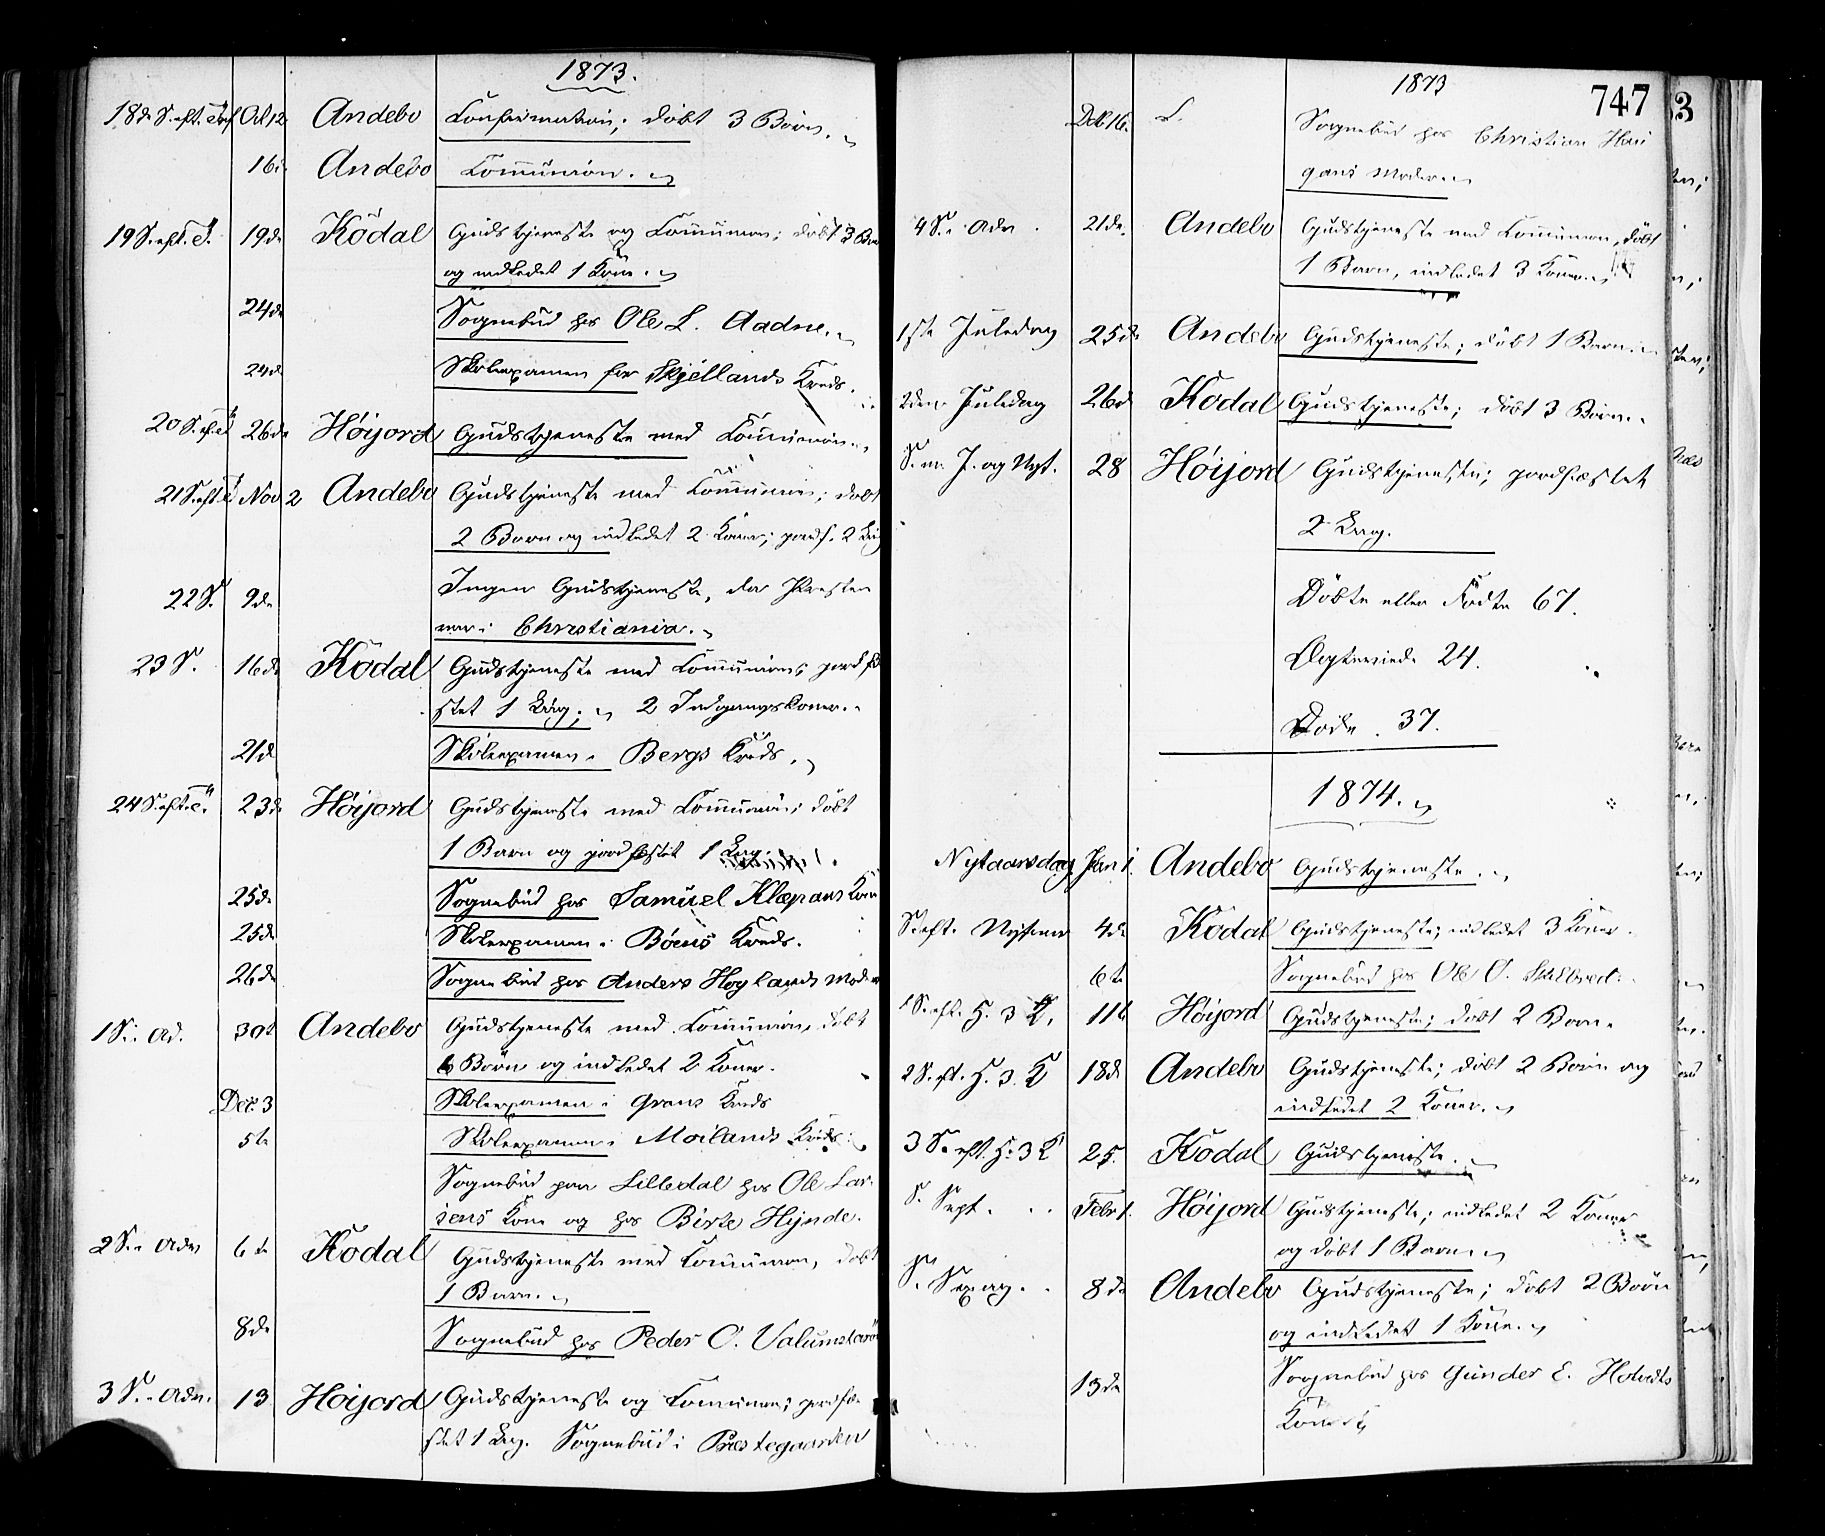 1873.
18de S. eft. Tref Oct 12 Andebo Confirmation; döbt 3 Börn.
16de Andebo Communion.
19 S. eft. T. 19de Kodal Gudstjeneste og Communion; döbt 3 Börn
og indledet 1 Kone.
24de Sognebud hos Ole L. Aadne.
24de Skoleexamen for Skjellands Kreds.
20 S. ef. T 26de Höijord Gudstjeneste med Communion.
21 S. eft. T Nov 2 Andebo Gudstjeneste med Communion; döbt
2 Börn og indledet 2 Koner; jordf. 2 Lig
22 S. 9de Ingen Gudstjeneste, da Præsten
var i Christiania.
23 S. 16de Kodal Gudstjeneste med Communion; jordfæ
stet 1 Lig; 2 Indgangskoner.
21de Skoleexamen i Bergs Kreds.
24 S. eft. T. 23de Höijord Gudstjeneste med Communion; döbt
1 Barn og jordfæstet 1 Lig.
25de Sognebud hos Samuel Klæpaas Kone
25de Skoleexamen i Böens Kreds.
26de Sognebud hos Anders Hoglands Moder
1 S. i Ad. 30te Andebo Gudstjeneste med Communion, döbt
6 Börn og indledet 2 Koner.
Dec. 3 Skoleexamen i Grans Kreds
5te Skoleexamen i Moilands Kreds.
Sognebud paa Lilledal hos Ole Lar-
sens Kone og hos Birte Hynde.
2 S. i Adv 6te Kodal Gudstjeneste med Communion, döbt
1 Barn.
8de Sognebud hos Peder O.
3 S. i Adv. 13 Höijord Gudstjeneste og Communion; jordfæ-
stet 1 Lig. Sognebud i Præstegaarden
1873
747
Dec 16. Sognebud hos Christian Hau
gans Moder
4 S. i Adv. 21de Andebo Gudstjeneste med Communion, döbt
1 Barn, indledet 3 Koner.
1ste Juledag 25de Andebo Gudstjeneste; döbt 1 Barn
2den Juledag 26de Kodal Gudstjeneste; döbt 3 Börn.
S. m. J. og Nyt. 28 Höijord Gudstjeneste; jordfæstet
2 Lig.
Döbte eller Födte 67.
Ægteviede 24.
Döde. 37.
1874.
Nytaarsdag Jan 1. Andebo Gudstjeneste.
S. eft. Nytaar 4de Kodal Gudstjeneste; indledet 3 Koner.
6te Sognebud hos Ole O.
1 S. eft. H. 3 K. 11te Höijord Gudstjeneste; döbt 2 Börn.
2 S. eft. H. 3. K 18de Andebo Gudstjeneste; döbt 2 Börn og
indledet 2 Koner.
3 S. eft. H. 3 K 25. Kodal Gudstjeneste.
S. Sept. Febr 1. Höijord Gudstjeneste; indledet 2 Koner
og döbt 1 Barn
S. Sexag. 8de Andebo Gudstjeneste; döbt 2 Börn
og indledet 1 Kone.
13de Sognebud hos Gunder E. Holvedts
Kone